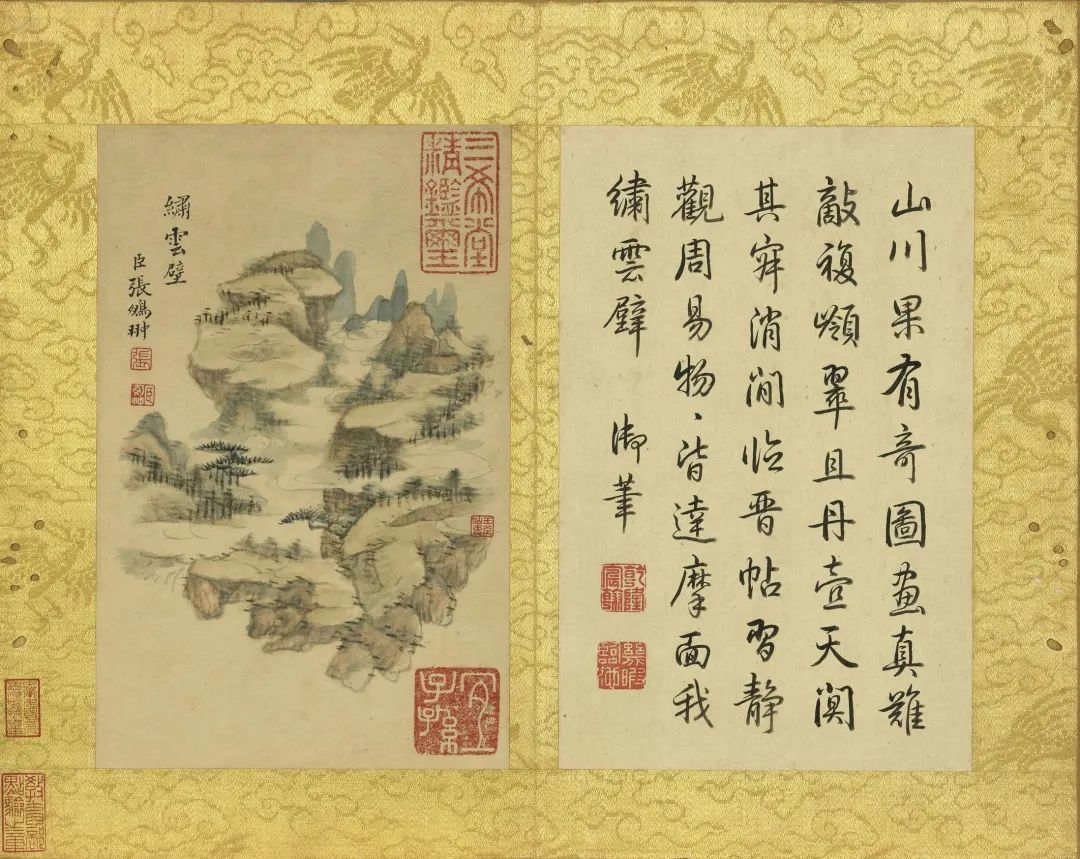 山川果有奇圖画真難
敵複嶺翠且丹壺天闃
其寂消閒临晋帖習静
觀周易物、皆達摩面我
繡雲壁
御筆
乾隆宸翰
幾暇臨池
三希堂精鑑璽
繡雲壁
臣張鵬翀
張
宜子孫
教育部點驗之章